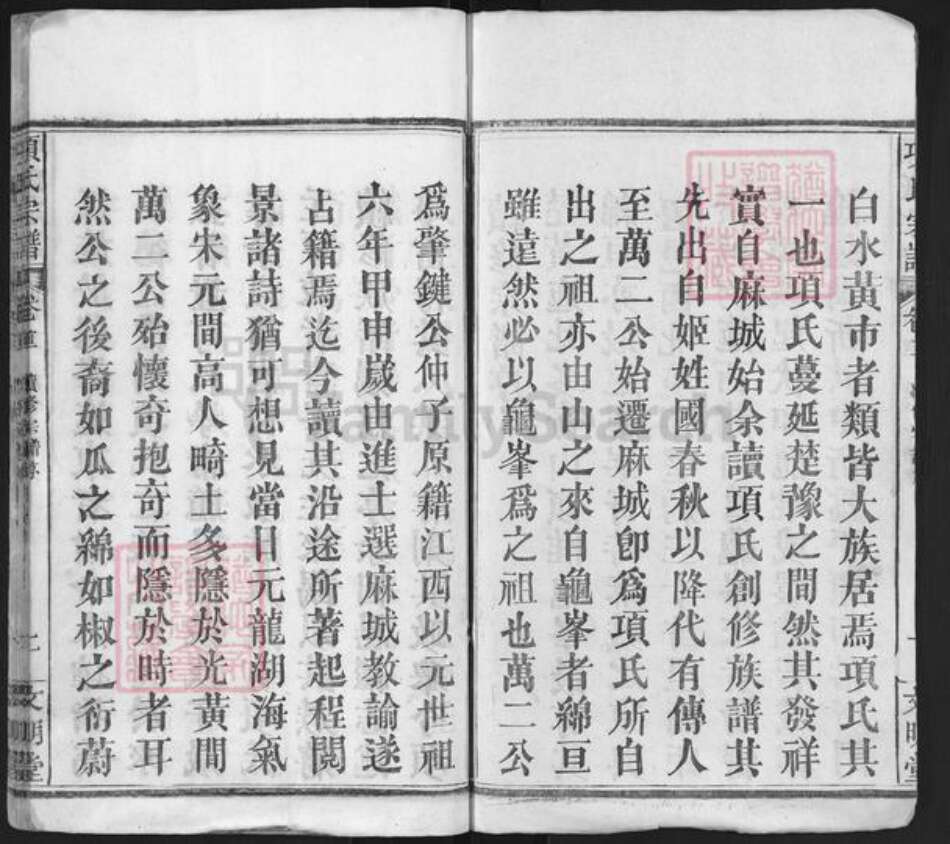 白水黃市者類皆大族居焉項氏其
一也項氏蔓延楚豫之間然其發祥
實自麻城始余讀項氏創修族譜其
先出自姬姓國春秋以降代有傳人
至萬二公始遷麻城卽爲項氏所自
出之祖亦由山之來自龜峯者綿亘
雖遠然必以龜峯爲之祖也萬二公
爲肇鍵公仲子原籍江西以元世祖
六年甲申嵗由進士選麻城教諭遂
占籍焉迄今讀其沿途所著起程閱
景諸詩猶可想見當日元龍湖海氣
象宋元間高人畸士多隱於光黃間
萬二公殆懷奇抱奇而隱於時者耳
然公之後裔如瓜之綿如椒之衍蔚
項氏宗譜 卷 續修宗譜序 七 文明堂
FamilySearch